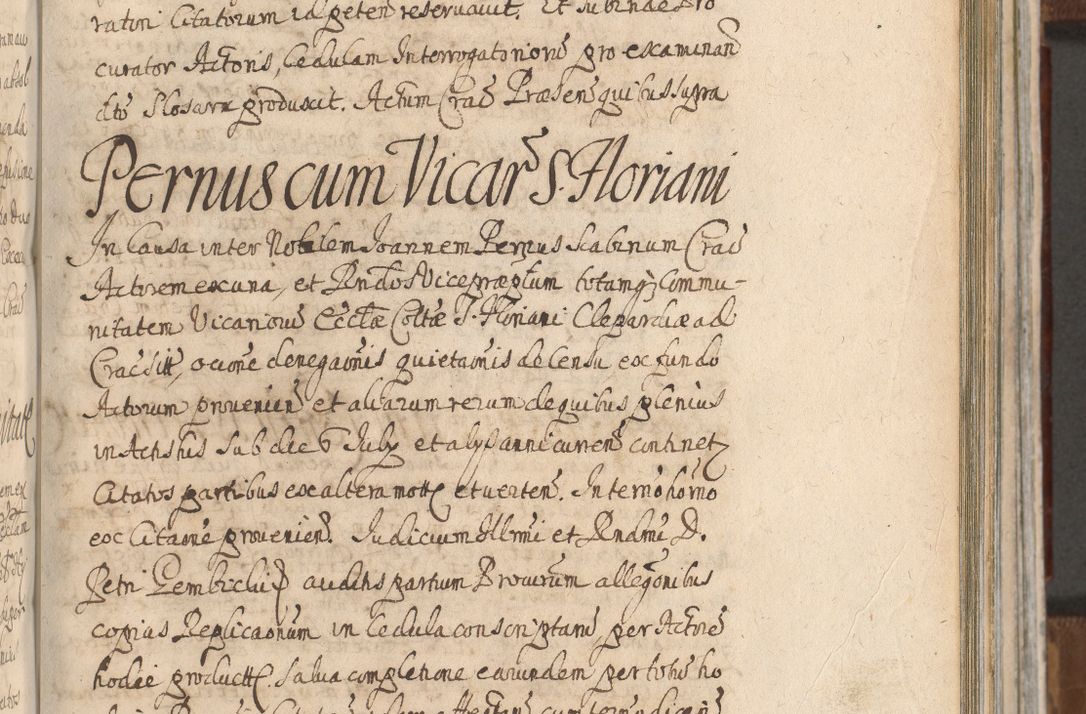 ratori Citatorum id peteñ reservavit. Et subinde Pro
curator Actoris, Cedulam Interrogatoriorũ pro examinan̄
dto Slosarz produxit. Actum Crac Præsenẽ quibus supra
Pernus cum Vicar̃ S. Floriani
In Causa inter Nobilem Joannem Pernus Scabinum Crac
Actorem ex una, et Rndos Vicepræptum totamq; Commu-
nitatem Vicariorũ Ecclæ Coltæ S. Floriani Clepardiæ ad
Crac sitt, ocione denegaonis quietaonis de Censu ex fundo
Actorum provenieñ et aliarum rerum de quibus plenius
in Actis his sub die 6 July et alys anni curreñ continet
Citatos partibus ex altera motte et verteñ. In termo horno
ex Citaone provenieñ. Judicium Illmi et Rndmi D.
Petri Gembicki auditis partium Procurum allegonibus
copias Replicaonum in Cedula conscriptam per Actorẽ
hodie productt. Salva completione earundem per totũ ho